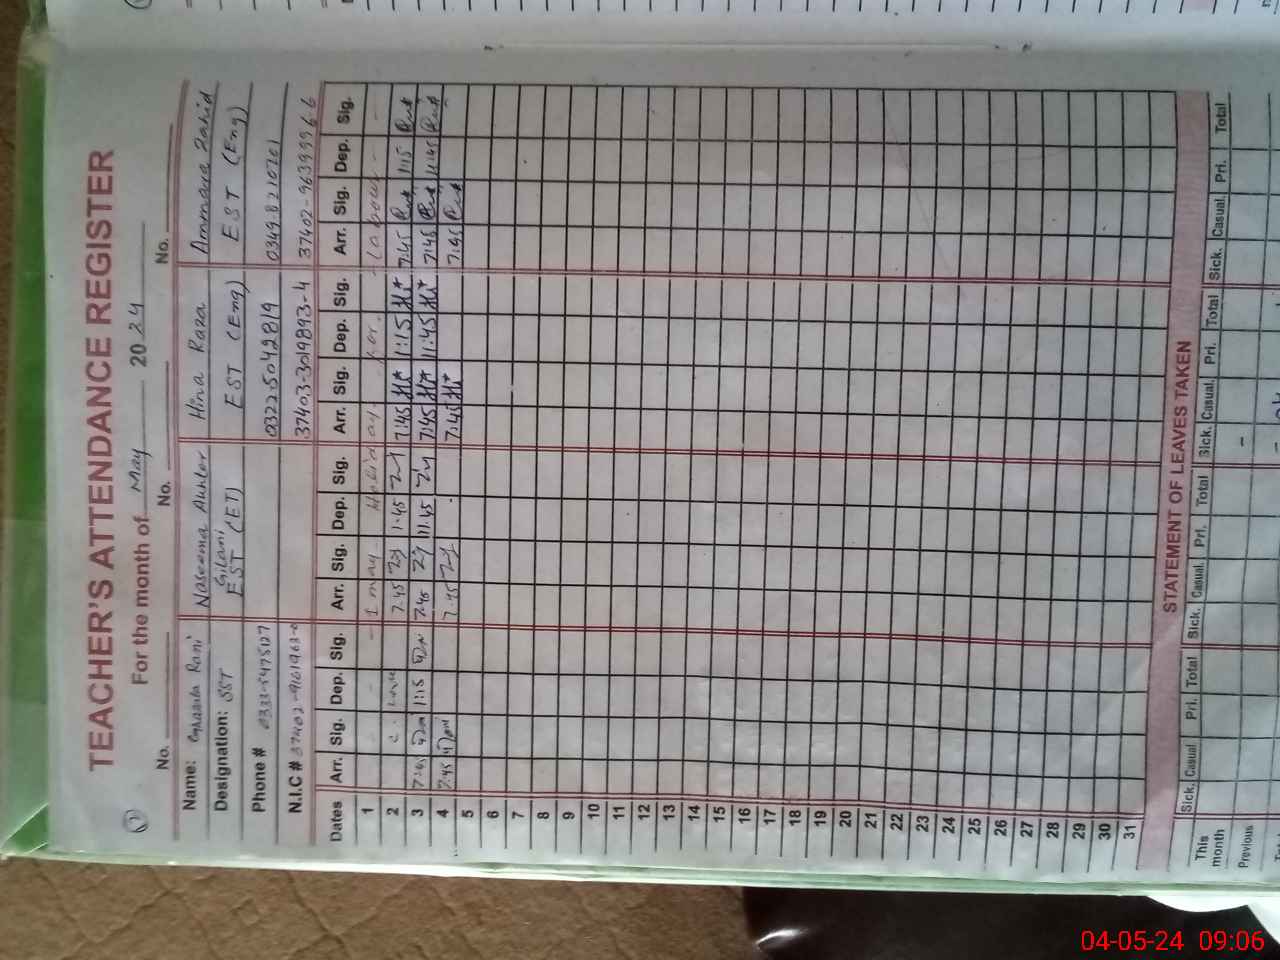 TEACHER'S ATTENDANCE REGISTER
For the month of May 2024
No. No. No.
Name: Rani Naseema Akhter Hina Raza Ammara Zahid
Gilani
Designation: SST EST (ET) EST (Eng) EST (Eng)
Phone # 0333-5475127 03225042819 03498210701
N.I.C # 37402-9161963- 37403-3019893-4 37402-9639996-6
Dates Arr. Sig. Dep. Sig. Arr. Sig. Dep. Sig. Arr. Sig. Dep. Sig. Arr. Sig. Dep. Sig.
1 1 may Holiday for labour
2 C. Leave 7.45 1.45 7:45 1:15 7:45 1:15
3 1:15 7.45 11.45 7:45 11:45 7:45 11:45
4 7:45 7.45 7:45 7:45
5
6
7
8
9
10
11
12
13
14
15
16
17
18
19
20
21
22
23
24
25
26
27
28
29
30
31
STATEMENT OF LEAVES TAKEN
Sick. Casual Pri. Total Sick. Casual. Pri. Total Sick. Casual. Pri. Total Sick. Casual. Pri. Total
This month
Previous -
04-05-24 09:06